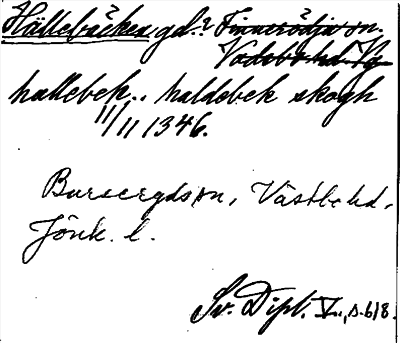 Hällebäcken gd.? Finnerödja sn.
Vadsbo hd. Vg
hællebek.. haldebek skogh
11/11 1346.
Burseryds sn, Västbo hd.
Jönk. l.
Sv. Dipl. V., s. 618.